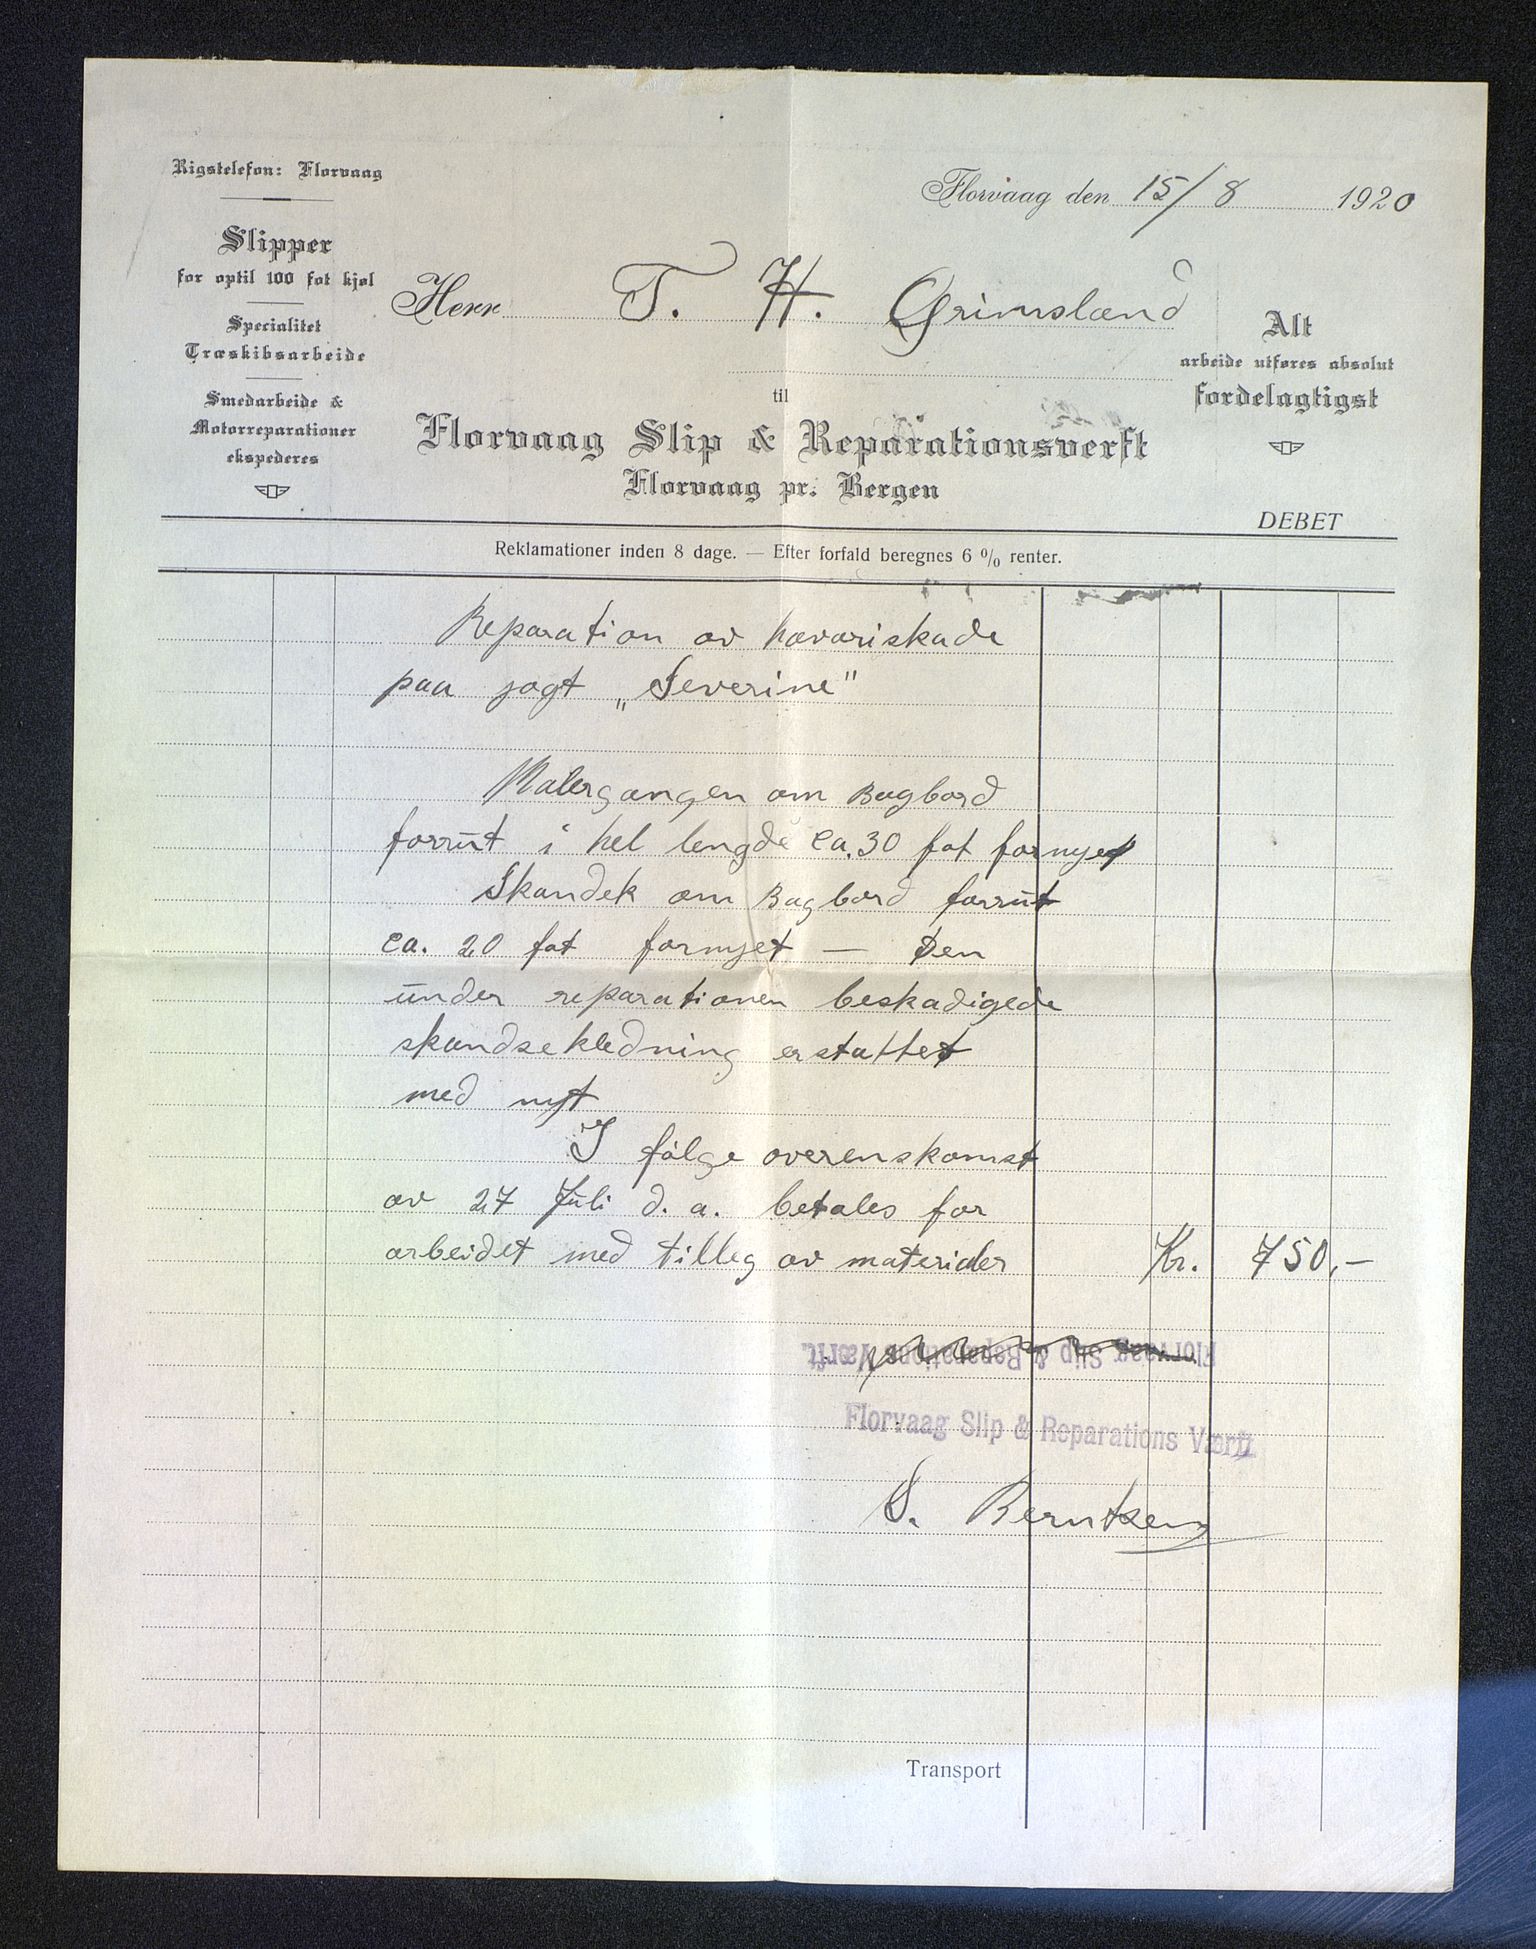 Rigstelefon: Florvaag
Slipper
for optil 100 fot kjøl
Specialitet
Træskibsarbeide
Smedarbeide &
Motorreparationer
ekspederes
Florvaag den 15/8 1920
Herr T. H. Grimsland
Alt
arbeide utføres absolut
fordelagtigst
til
Florvaag Slip & Reparationsverft
Florvaag pr. Bergen
DEBET
Reklamationer inden 8 dage. — Efter forfald beregnes 6 % renter.
Reparation av havariskade
paa jagt „Severine"
Malergangen om Bagbord
forrut i hel lengde ca. 30 fot fornyet
Skandek om Bagbord forrut
ca. 20 fot fornyet — Den
under reparationen beskadigede
skandsekledning erstattet
med nyt
I følge overenskomst
av 27 Juli d. a. betales for
arbeidet med tilleg av materialer Kr. 750,-
Florvaag Slip & Reparations Værft.
Florvaag Slip & Reparations Værft
S. Berntsen
Transport